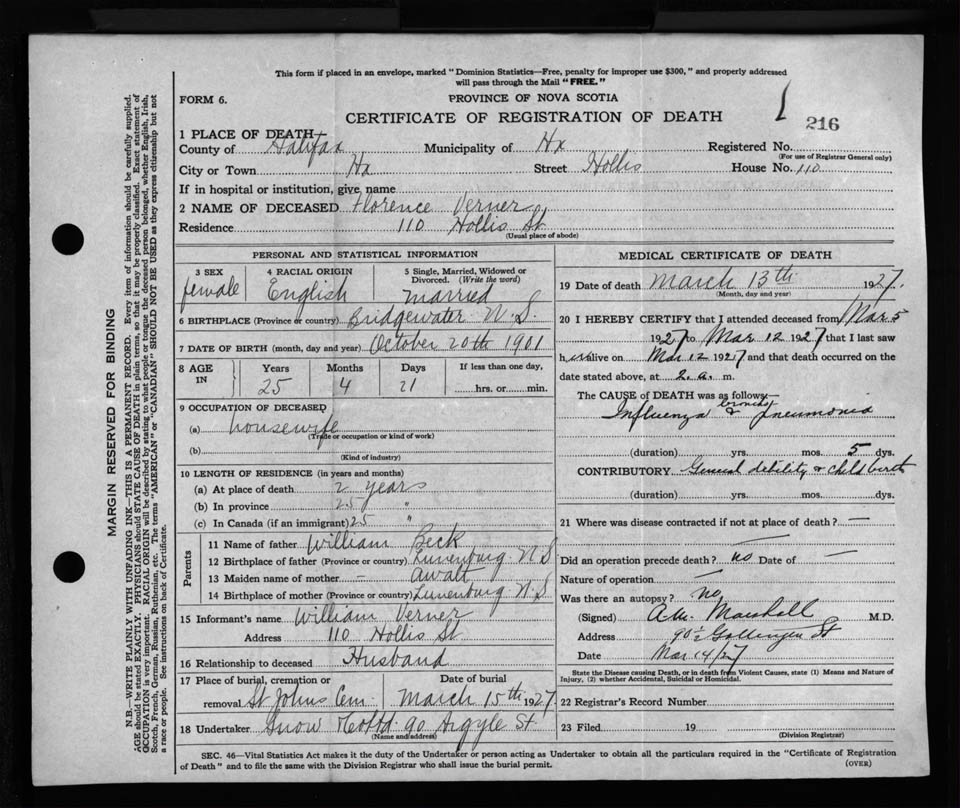 This form if placed in an envelope, marked "Dominion Statistics—Free, penalty for improper use $300," and properly addressed
will pass through the Mail "FREE."
FORM 6.
PROVINCE OF NOVA SCOTIA
CERTIFICATE OF REGISTRATION OF DEATH
216
1 PLACE OF DEATH—
County of Halifax Municipality of Hx Registered No.
(For use of Registrar General only)
City or Town Hx Street Hollis House No. 110
If in hospital or institution, give name
2 NAME OF DECEASED Florence Verner
Residence 110 Hollis St
(Usual place of abode)
PERSONAL AND STATISTICAL INFORMATION
3 SEX female
4 RACIAL ORIGIN English
5 Single, Married, Widowed or Divorced. (Write the word) married
6 BIRTHPLACE (Province or country) Bridgewater N.S.
7 DATE OF BIRTH (month, day and year) October 20th 1901
8 AGE IN
Years Months Days If less than one day,
25 4 21 hrs. or min.
9 OCCUPATION OF DECEASED
(a) housewife
(Trade or occupation or kind of work)
(b)
(Kind of industry)
10 LENGTH OF RESIDENCE (in years and months)
(a) At place of death 2 years
(b) In province 25 "
(c) In Canada (if an immigrant) 25 "
Parents
11 Name of father William Beck
12 Birthplace of father (Province or country) Lunenburg N S
13 Maiden name of mother — Awalt
14 Birthplace of mother (Province or country) Lunenburg N.S
15 Informant's name William Verner
Address 110 Hollis St
16 Relationship to deceased Husband
17 Place of burial, cremation or removal St Johns Cem
Date of burial March 15th 1927
18 Undertaker Snow Co Ltd 90 Argyle St
(Name and address)
MEDICAL CERTIFICATE OF DEATH
19 Date of death March 13th 1927.
(Month, day and year)
20 I HEREBY CERTIFY that I attended deceased from Mar 5
1927 to Mar 12 1927 that I last saw
her alive on Mar 12 1927 and that death occurred on the
date stated above, at 2. a. m.
The CAUSE of DEATH was as follows:—
Influenza & broncho pneumonia
(duration) yrs. mos. 5 dys.
CONTRIBUTORY General debility & child birth
(duration) yrs. mos. dys.
21 Where was disease contracted if not at place of death? —
Did an operation precede death? no Date of —
Nature of operation —
Was there an autopsy? no
(Signed) Marshall M.D.
Address 90½ Gottingen St
Date Mar 14/27
State the Disease causing Death, or in death from Violent Causes, state (1) Means and Nature of
Injury, (2) whether Accidental, Suicidal or Homicidal.
22 Registrar's Record Number
23 Filed 19
(Division Registrar)
SEC. 46—Vital Statistics Act makes it the duty of the Undertaker or person acting as Undertaker to obtain all the particulars required in the "Certificate of Registration
of Death" and to file the same with the Division Registrar who shall issue the burial permit. (OVER)
MARGIN RESERVED FOR BINDING
N.B.—WRITE PLAINLY WITH UNFADING INK—THIS IS A PERMANENT RECORD. Every item of information should be carefully supplied.
AGE should be stated EXACTLY. PHYSICIANS should STATE CAUSE OF DEATH in plain terms, so that it may be properly classified. Exact statement of
OCCUPATION is very important. RACIAL ORIGIN will be described by stating to what people or tongue the deceased person belonged, whether English, Irish,
Scotch, French, German, Russian, Ruthenian, etc. The terms "AMERICAN" or "CANADIAN" SHOULD NOT BE USED as they express citizenship but not
a race or people. See instructions on back of Certificate.